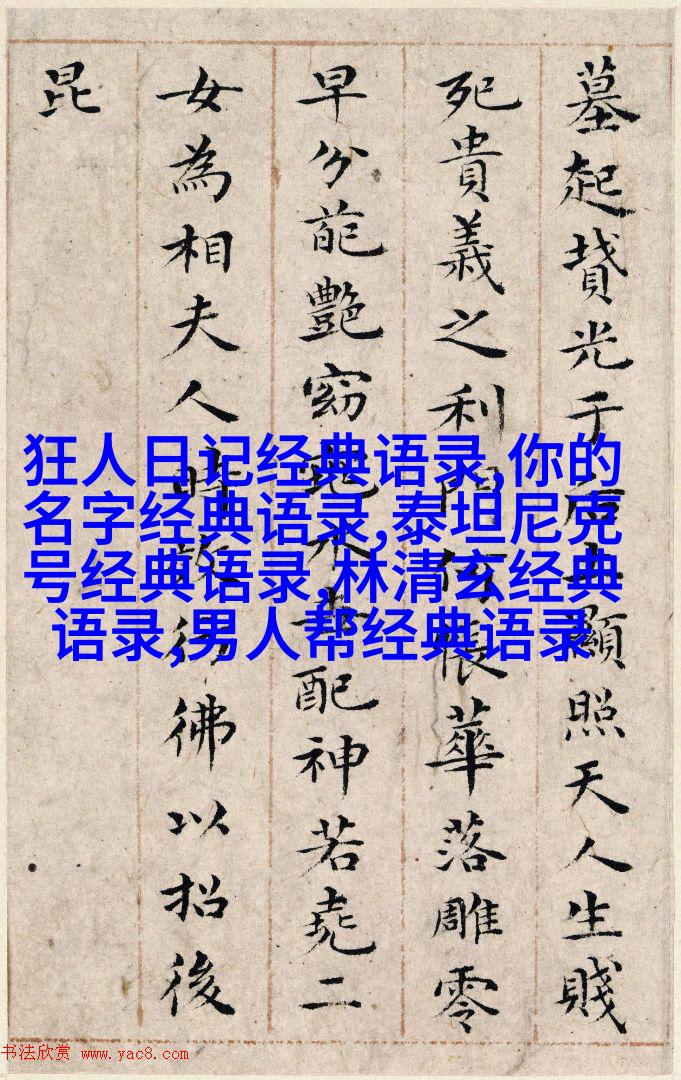 墓起墳光于后土顯照天人生賤
死貴義之利門何悵華落雕零
早分葩艷窈窕永世配神若堯二
女為相夫人時效彷彿以招後
昆
狂人日记经典语录,你的
名字经典语录,泰坦尼克
号经典语录,林清玄经典
语录,男人帮经典语录
书法欣赏 www.yac8.com